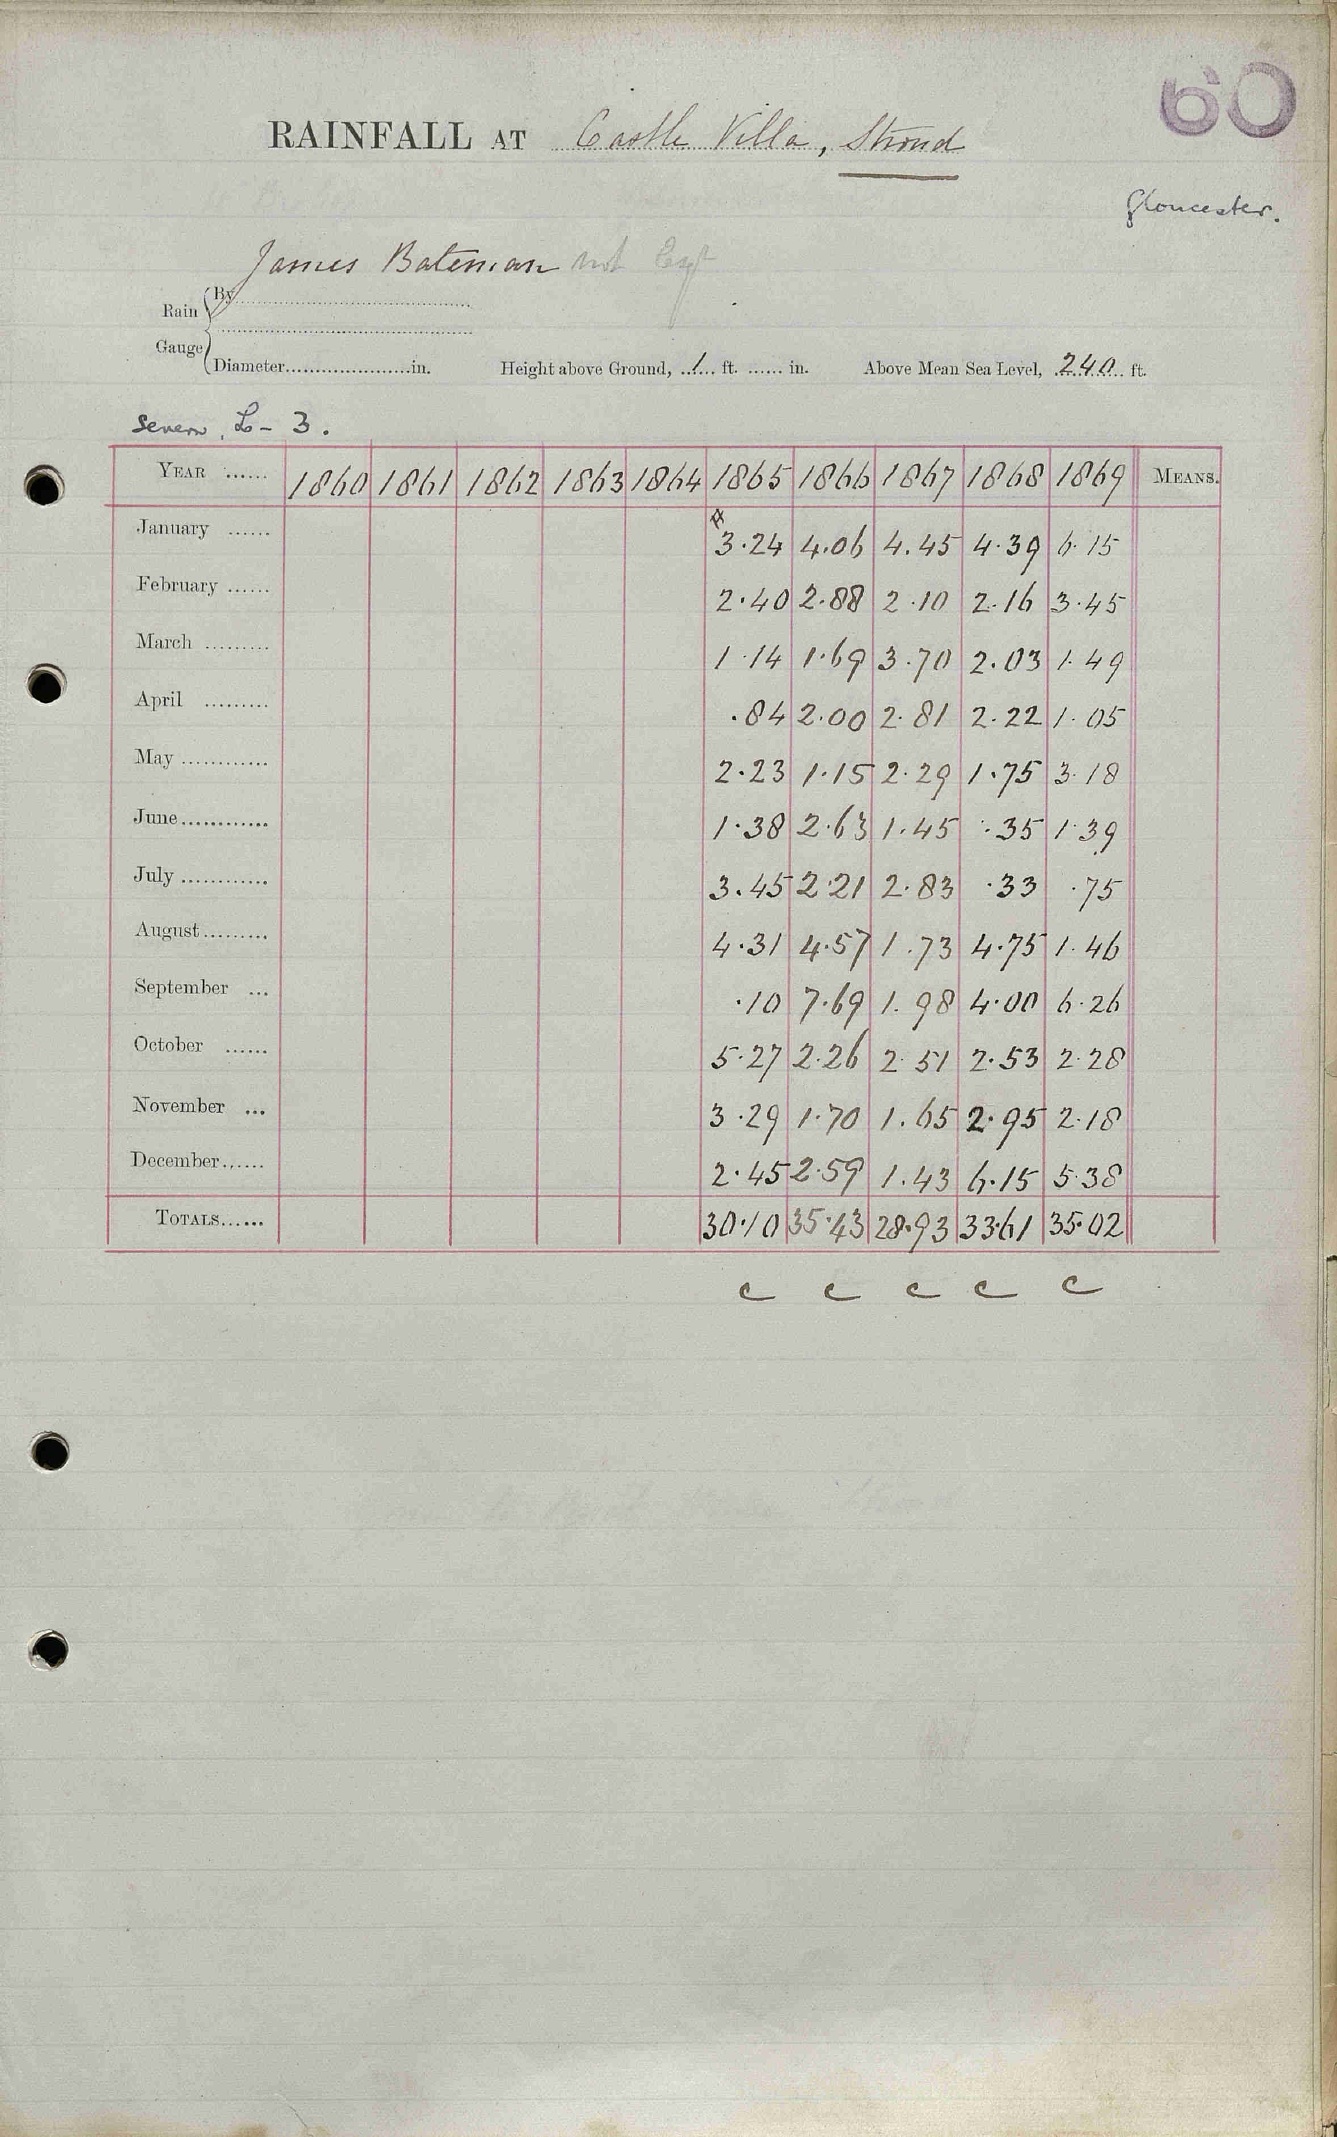 60
RAINFALL AT Castle Villa, Stroud
Gloucester.
James Bateman not Esqr
Rain Gauge
By
Diameter in. Height above Ground, 1 ft. in. Above Mean Sea Level, 240 ft.
Severn, L - 3.
YEAR 1860 1861 1862 1863 1864 1865 1866 1867 1868 1869 MEANS.
January 3.24 4.06 4.45 4.39 6.15
February 2.40 2.88 2.10 2.16 3.45
March 1.14 1.69 3.70 2.03 1.49
April .84 2.00 2.81 2.22 1.05
May 2.23 1.15 2.29 1.75 3.18
June 1.38 2.63 1.45 .35 1.39
July 3.45 2.21 2.83 .33 .75
August 4.31 4.57 1.73 4.75 1.46
September .10 7.69 1.98 4.00 6.26
October 5.27 2.26 2.51 2.53 2.28
November 3.29 1.70 1.65 2.95 2.18
December 2.45 2.59 1.43 6.15 5.38
TOTALS 30.10 35.43 28.93 33.61 35.02
c c c c c